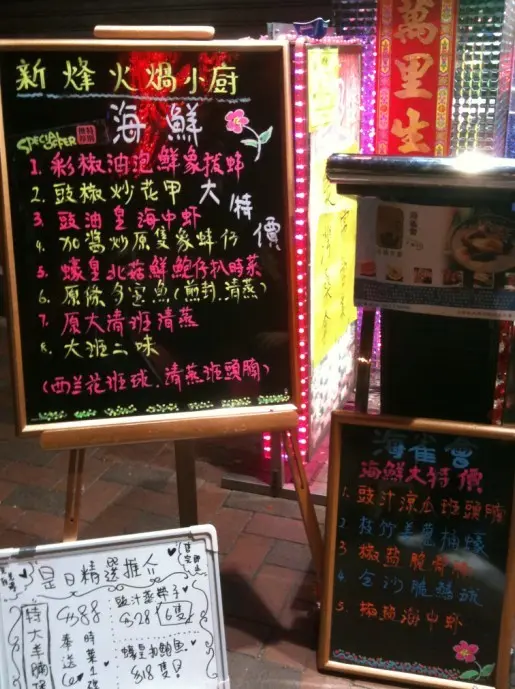 新烽火焗小廚
海鮮
SPECIAL OFFER
大特價
1. 彩椒油泡鮮象拔蚌
2. 豉椒炒花甲
3. 豉油皇海中虾
4. 加醬炒原隻象蚌仔
5. 蠔皇北菇鮮鮑仔扒時菜
6. 原條多宝魚(煎封.清蒸)
7. 原大清班清蒸
8. 大班二味
(西兰花班球.清蒸班頭腩)
萬里生
海雀會
海鮮大特價
1. 豉汁涼瓜班頭腩
2. 枝竹羌葱柚蠔
3 椒盐
4
5. 海中虾
是日精選推介
特大羊腩
$88
奉送
時菜1
豉汁蒸帶子
$28 6隻
蠔皇扣鮑魚
$18隻!